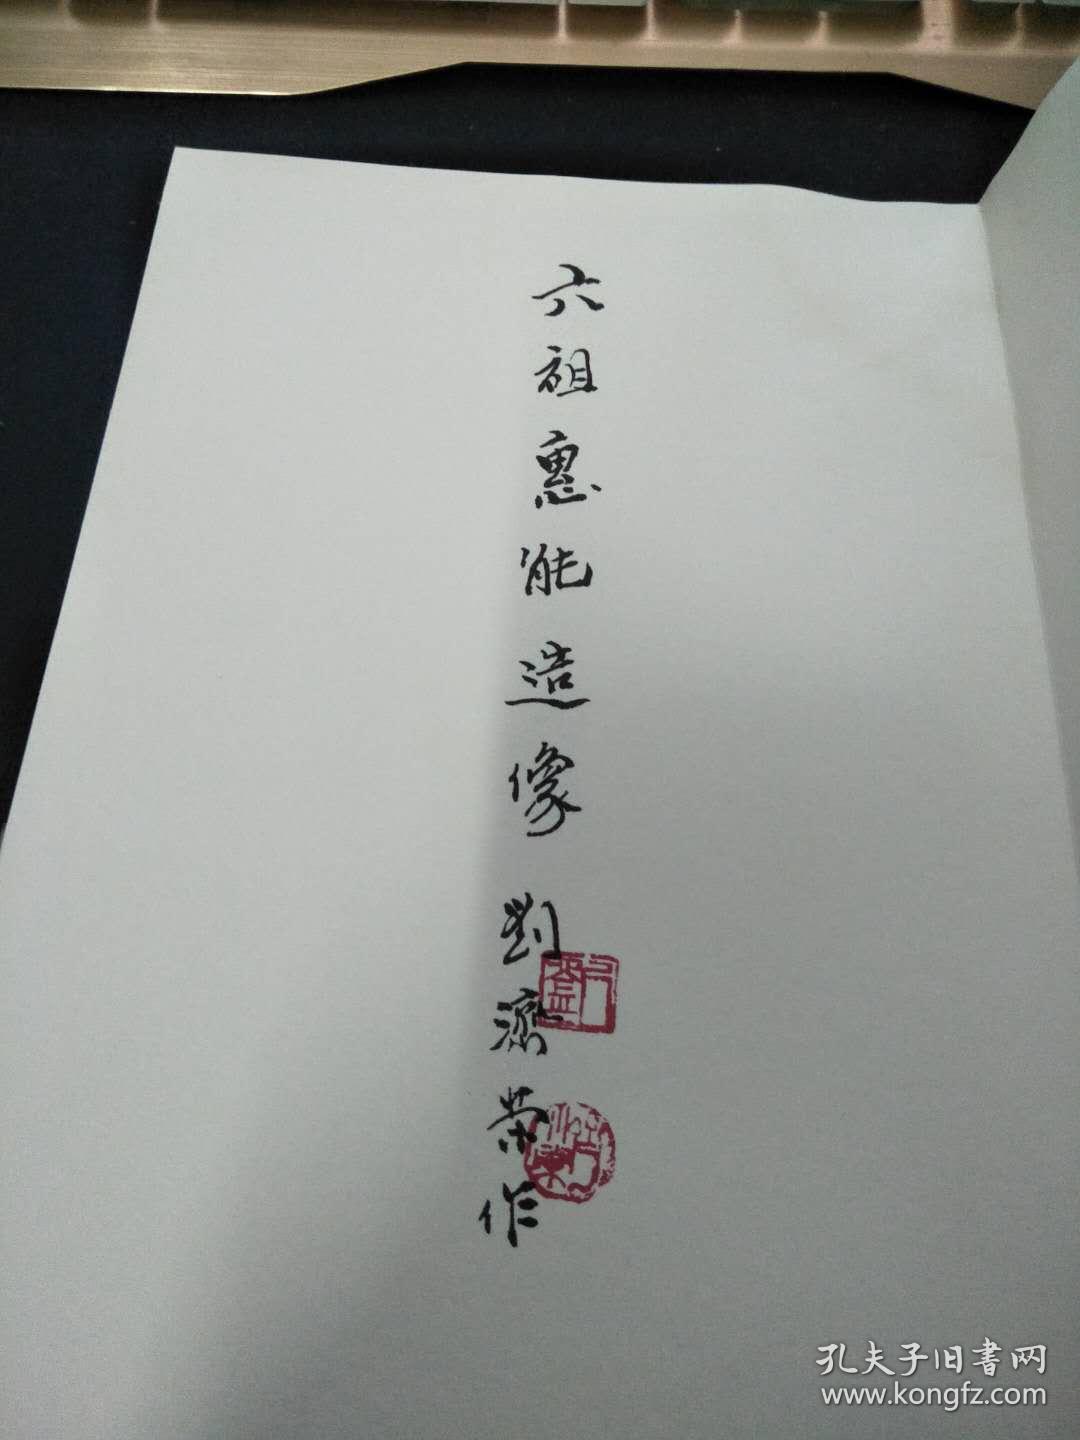 六祖惠能造像 劉濟荣作
孔夫子旧書网
www.kongfz.com